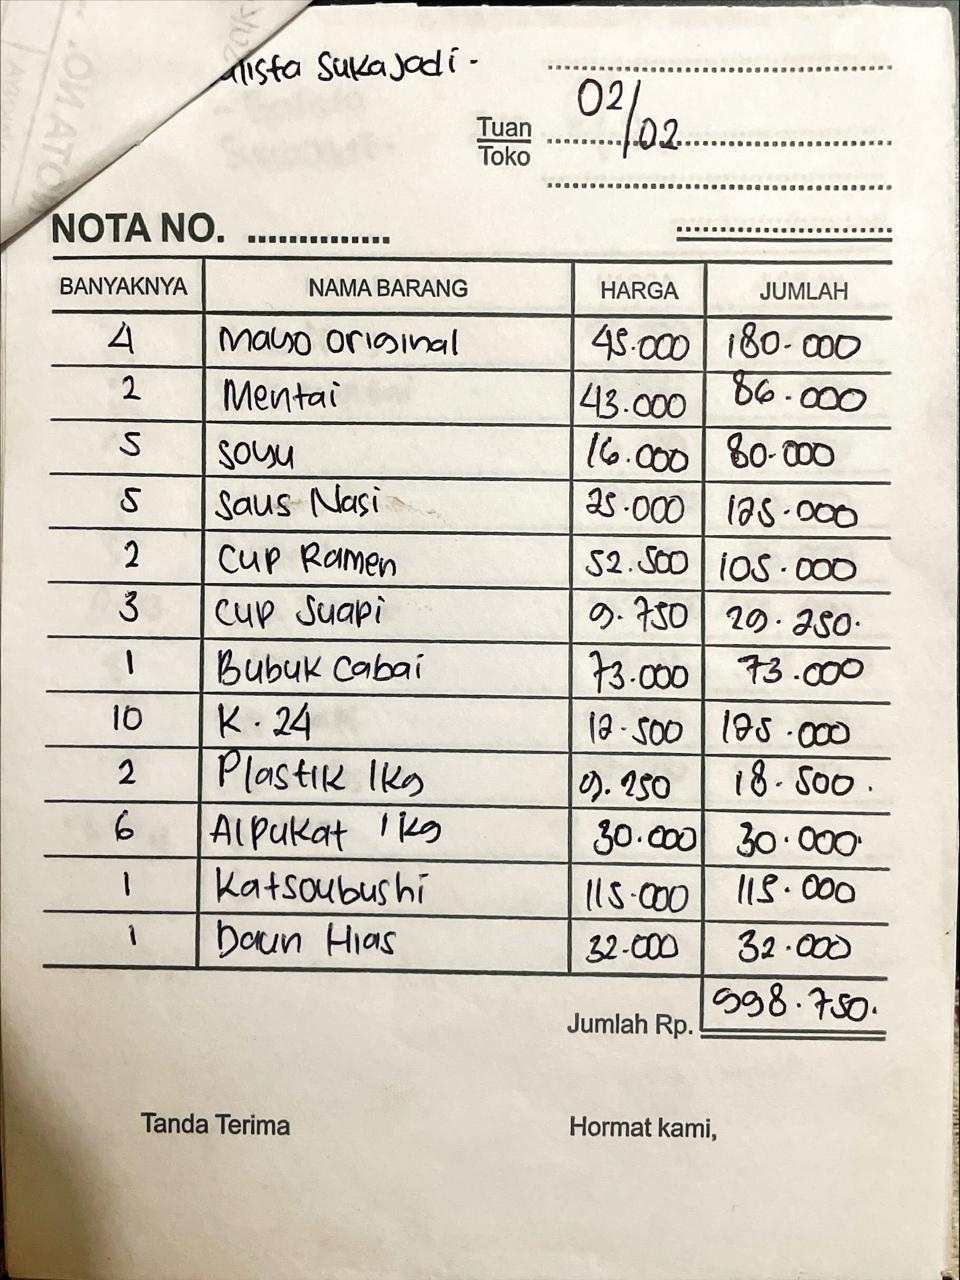 Sukajadi -
02/02
Tuan
Toko
NOTA NO. ...............
BANYAKNYA NAMA BARANG HARGA JUMLAH
4 Mayo original 45.000 180.000
2 Mentai 43.000 86.000
5 Soyu 16.000 80.000
5 Saus Nasi 25.000 125.000
2 Cup Ramen 52.500 105.000
3 Cup Suapi 9.750 29.250.
1 Bubuk Cabai 73.000 73.000
10 K. 24 12.500 125.000
2 Plastik 1kg 9.250 18.500.
6 Alpukat 1kg 30.000 30.000.
1 Katsoubushi 115.000 115.000
1 Daun Hias 32.000 32.000
Jumlah Rp. 998.750.
Tanda Terima Hormat kami,